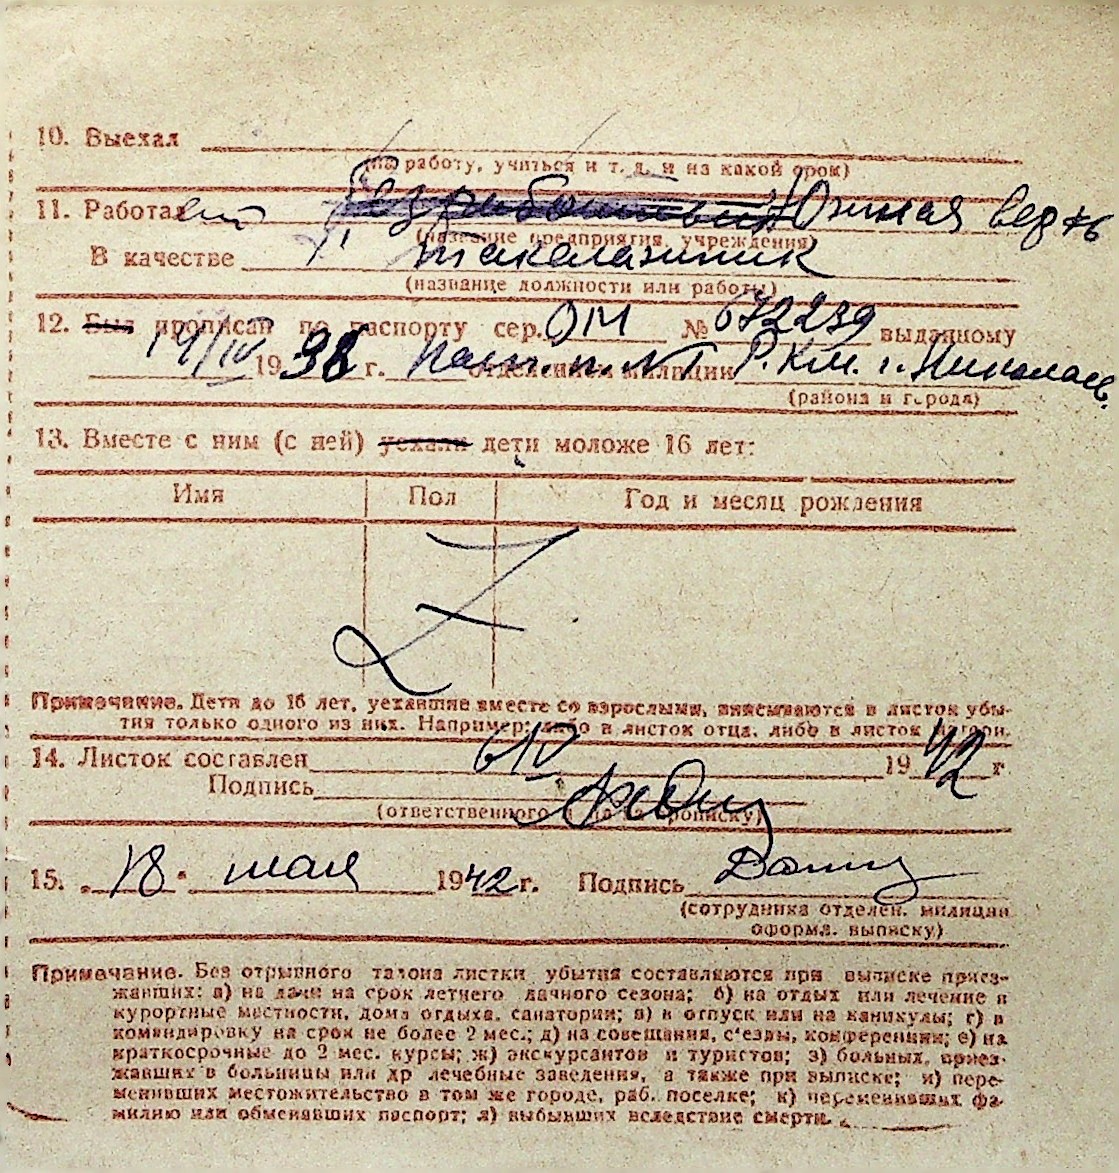 10. Выехал
(на работу, учиться и т. д. и на какой срок)
11. Работает Безработный Южная верфь
(название предприятия, учреждения)
В качестве такелажник
(название должности или работы)
12. Был прописан по паспорту сер. ОМ № 672239 выданному
19/IV 1938 г. отделением милиции Р.К.М. г. Николаев.
(района и города)
13. Вместе с ним (с ней) уехали дети моложе 16 лет:
Имя Пол Год и месяц рождения
Z
Примечание. Дети до 16 лет, уехавшие вместе со взрослыми, вписываются в листок убы-
тия только одного из них. Например: либо в листок отца, либо в листок матери.
14. Листок составлен 6 IV 1942 г.
Подпись
(ответственного лица за прописку)
15. „18" мая 1942 г. Подпись
(сотрудника отделен. милиции
оформл. выписку)
Примечание. Без отрывного талона листки убытия составляются при выписке приез-
жавших: а) на дачи на срок летнего дачного сезона; б) на отдых или лечение в
курортные местности, дома отдыха, санатории; в) в отпуск или на каникулы; г) в
командировку на срок не более 2 мес.; д) на совещания, с'езды, конференции; е) на
краткосрочные до 2 мес. курсы; ж) экскурсантов и туристов; з) больных, приез-
жавших в больницы или др лечебные заведения, а также при выписке; и) пере-
менивших местожительство в том же городе, раб. поселке; к) переменивших фа-
милию или обменявших паспорт; л) выбывших вследствие смерти.